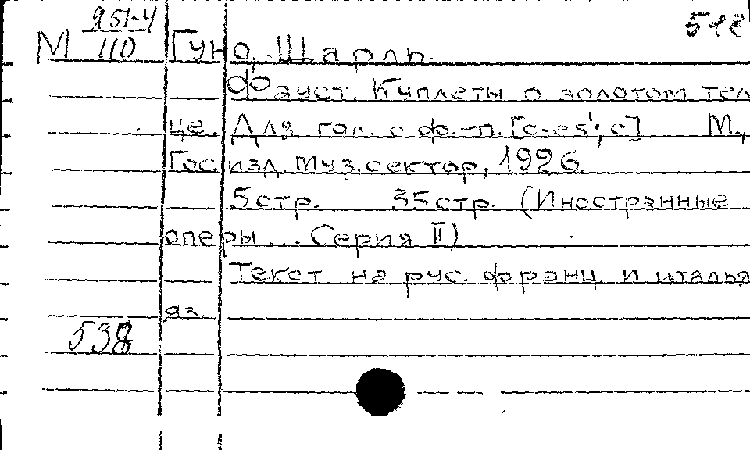 951-4 518
М 110 Гуно, Шарль.
Фауст. Куплеты о золотом тель
це. Для гол. с ф.-п. [c-es¹; c] М.,
Гос. изд. муз. сектор, 1926.
5 стр. 35 стр. (Иностранные
оперы... Серия II)
Текст на рус. франц. и италья
яз.
538